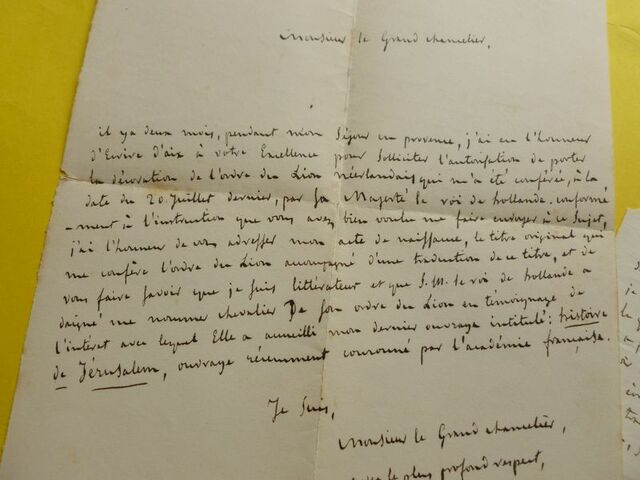 Monsieur le Grand chancelier,
il y a deux mois, pendant mon Séjour en provence, j'ai eu l'honneur
d'Ecrire d'aix à votre Excellence pour Solliciter l'autorisation de porter
la décoration de l'ordre du Lion néerlandais qui m'a été conférée, à la
date du 20 Juillet dernier, par Sa Majesté le roi de hollande. conformé
-ment à l'instruction que vous avez bien voulu me faire envoyer à ce Sujet,
j'ai l'honneur de vous adresser mon acte de naissance, le titre original qui
me confère l'ordre du Lion accompagné d'une traduction de ce titre, et de
vous faire Savoir que je suis littérateur et que S. M. le roi de hollande a
daigné me nommer chevalier De Son ordre du Lion en témoignage de
l'intéret avec lequel Elle a accueilli mon dernier ouvrage intitulé: histoire
de Jérusalem, ouvrage récemment couronné par l'académie française.
Je Suis,
Monsieur le Grand chancelier,
le plus profond respect,